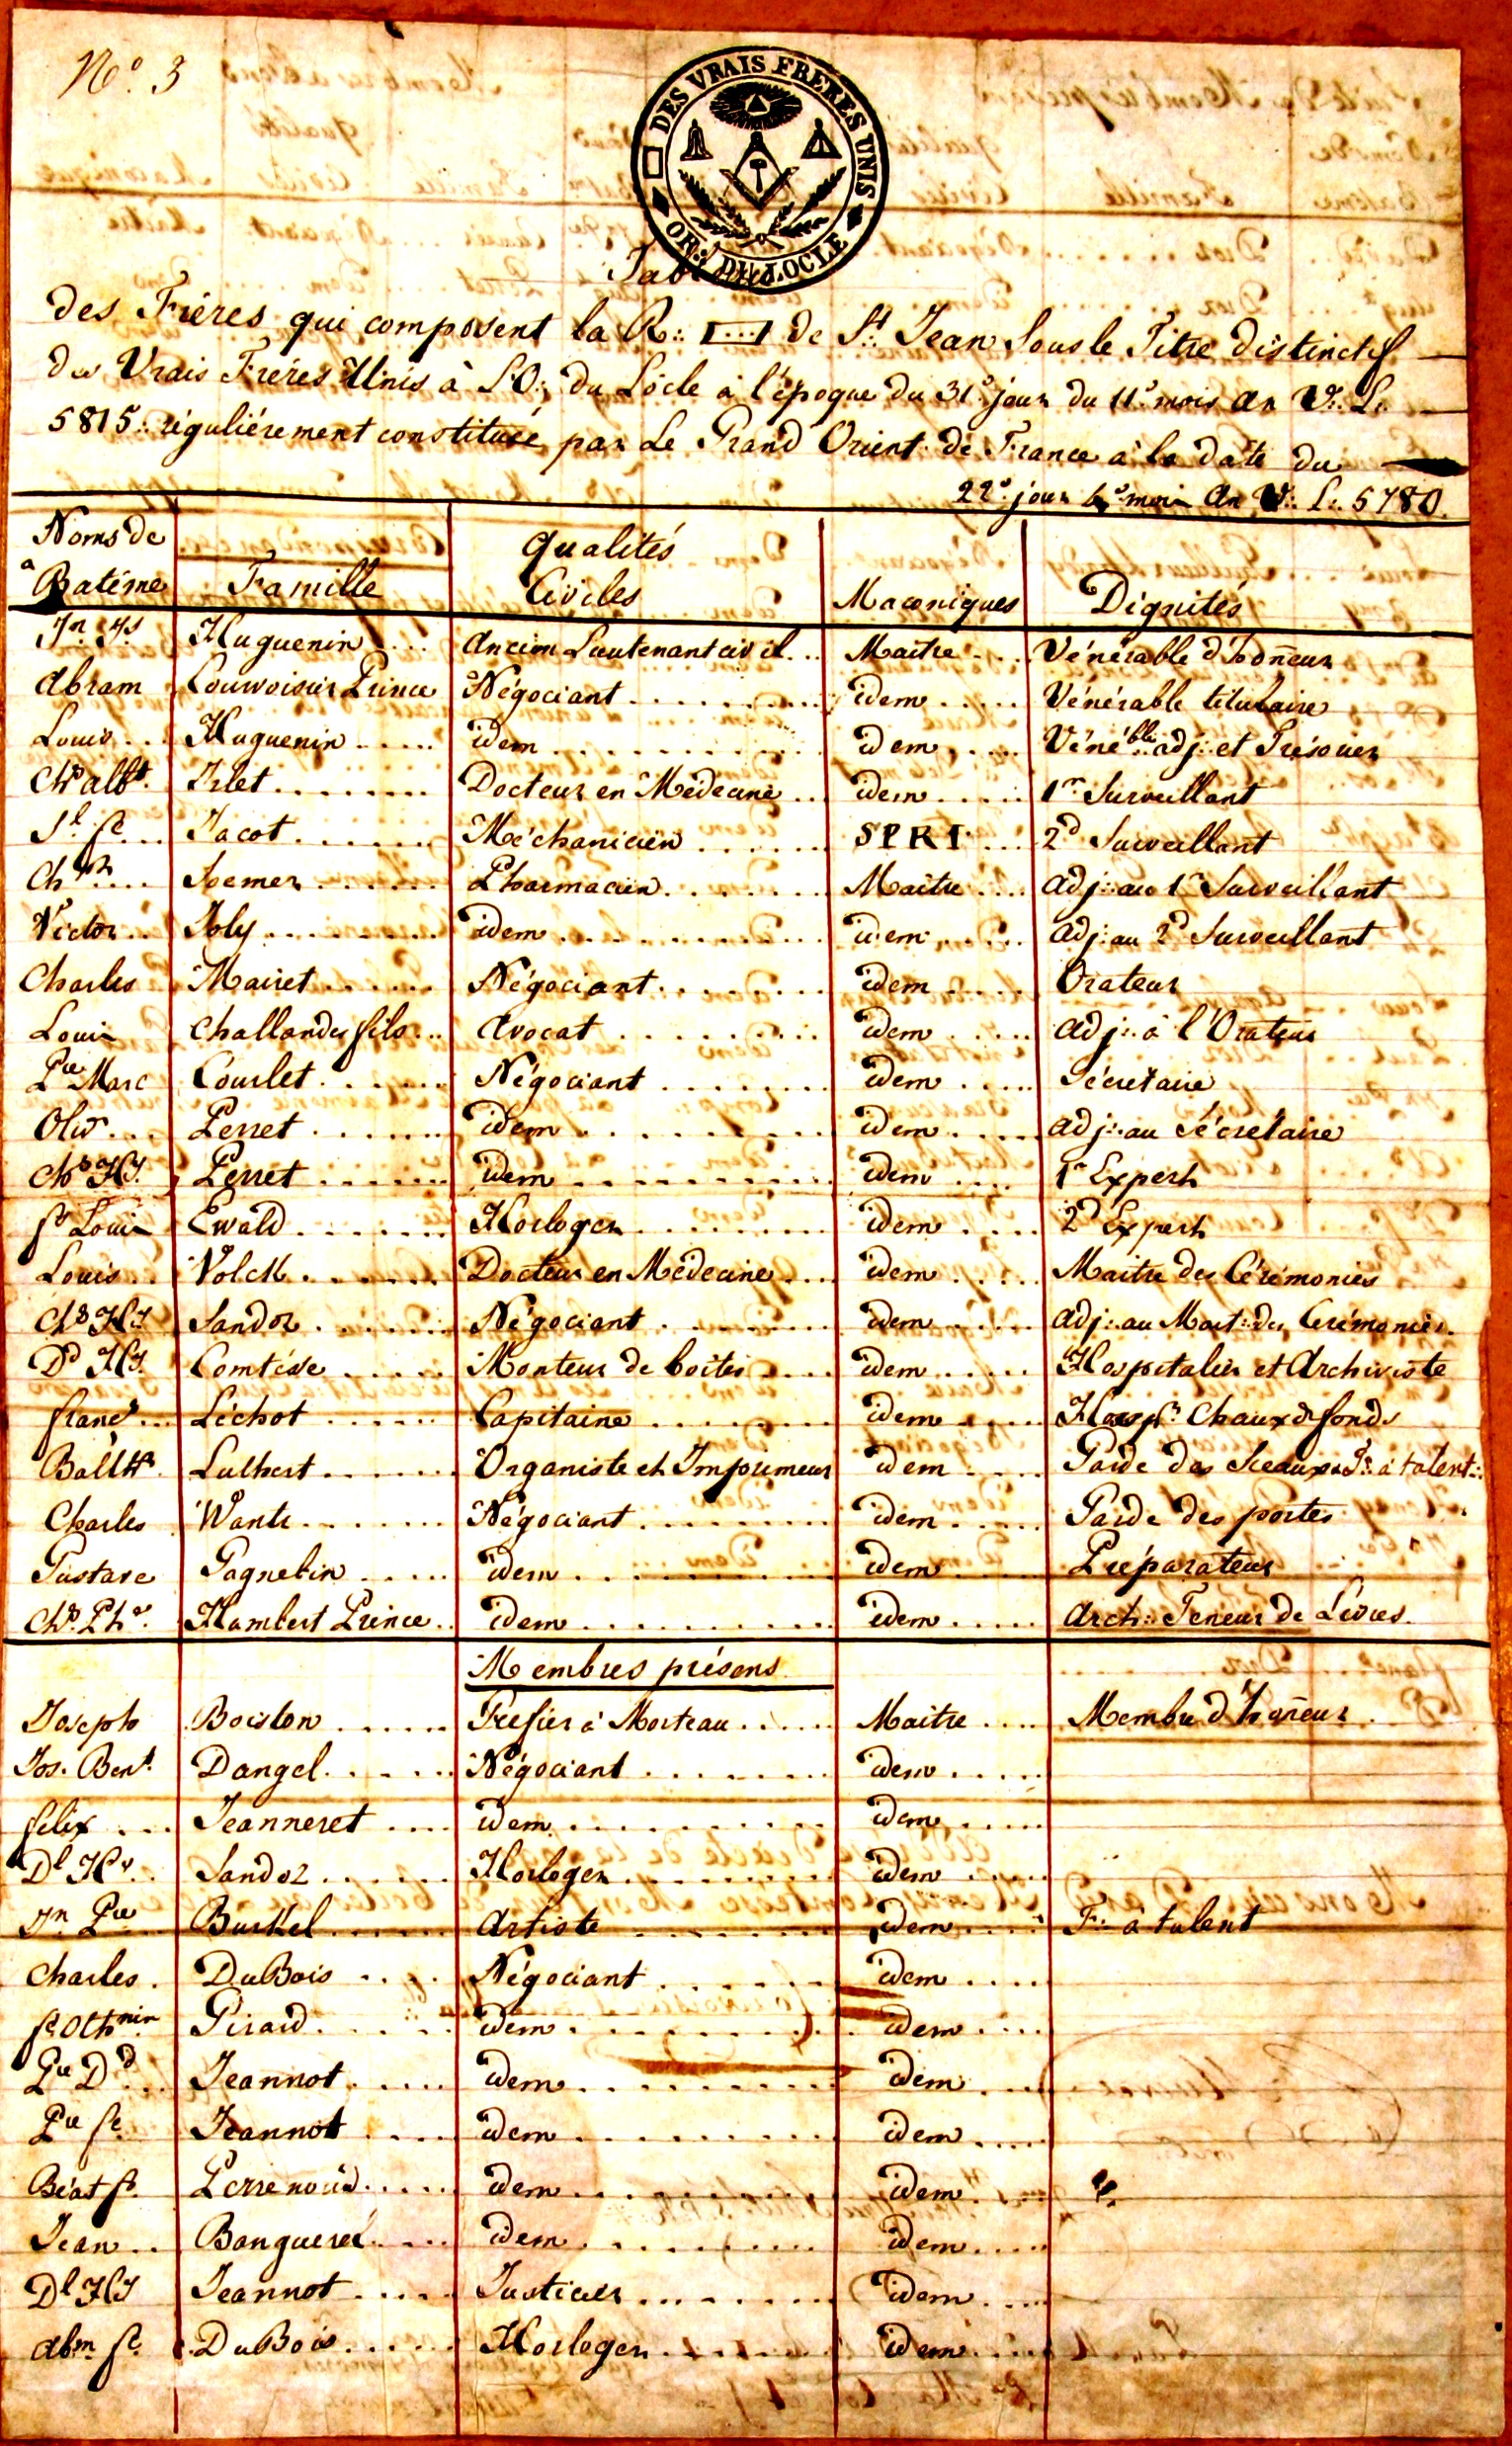 N.º 3
DES VRAIS FRERES UNIS
OR∴ DU LOCLE
Tableau
des Fréres qui composent la R∴ de St Jean Sous le Titre distinctif
des Vrais Fréres Unis à L'O∴ du Locle à l'époque du 31e jour du 11e mois An V∴ L∴
5815∴ réguliérement constituée par Le Grand Orient de France à la date du
22e jour mois An V∴ L∴ 5780.
Noms de Batéme Famille Qualités Civiles Maconiques Dignités
Jn Hy Huguenin Ancien Lieutenant civil Maitre Vénérable d'honneur
Abram Courvoisier Prince Négociant idem Vénérable titulaire
Louis Huguenin idem idem Vénéble adj∴ et Trésorier
Chs albt Irlet Docteur en Médecine idem 1er Surveillant
Sl fc Jacot Méchanicien SPRI 2d Surveillant
Chn Stemer Pharmacien Maitre adj∴ au 1er Surveillant
Victor Joly idem idem adj∴ au 2d Surveillant
Charles Mairet Négociant idem Orateur
Louis Challandes fils Avocat idem adj∴ à l'Orateur
Pre Marc Courlet Négociant idem Sécretaire
Olivr Perret idem idem adj∴ au Sécretaire
Chs Hy Perret idem idem 1er Expert
fc Louis Ewald Horloger idem 2d Expert
Louis Volck Docteur en Médecine idem Maitre des Cérémonies
Chs Hy Sandoz Négociant idem adj∴ au Mait∴ des Cerémonies
Dd Hy Comtésse Monteur de boites idem Hospitalier et Archiviste
francs Léchot Capitaine idem Hospr Chaux de fonds
Balthr Luthert Organiste et Imprimeur idem Garde des Sceaux F∴ à talent
Charles Wants Négociant idem Garde des portes
Gustave Gagnebin idem idem Préparateur
Chs Phe Humbert Prince idem idem Arch∴ Teneur de Livres
Membres présens
Joseph Boiston Grefier à Morteau Maitre Membre d'honneur
Jos. Bent Dangel Négociant idem
felix Jeanneret idem idem
Dl Hy Sandoz Horloger idem
Jn Pre Burkel Artiste idem F∴ à talent
Charles DuBois Négociant idem
fc Othnin Girard idem idem
Pre Dd Jeannot idem idem
Pre fc Jeannot idem idem
Béat fc Perrenoud idem idem
Jean Banguerel idem idem
Dl Hy Jeannot Justicier idem
Abm fc DuBois Horloger idem